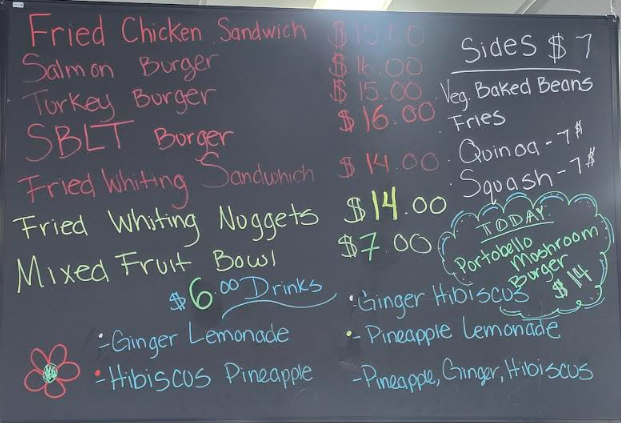 Fried Chicken Sandwich $15.00
Salmon Burger $16.00
Turkey Burger $15.00
SBLT Burger $16.00
Fried Whiting Sandwhich $14.00
Fried Whiting Nuggets $14.00
Mixed Fruit Bowl $7.00
Sides $7
Veg. Baked Beans
Fries
Quinoa - 7$
Squash - 7$
TODAY
Portobello
Moshroom
Burger
$14
$6.00 Drinks
- Ginger Lemonade
- Hibiscus Pineapple
Ginger Hibiscus
- Pineapple Lemonade
- Pineapple, Ginger, Hibiscus